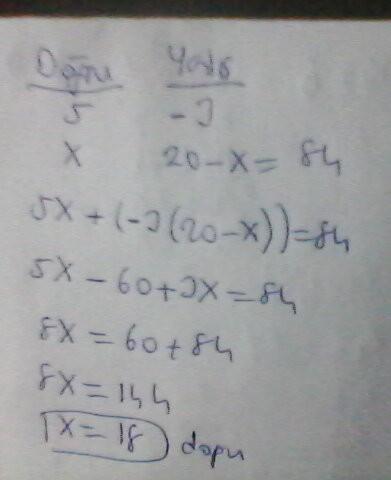 Doğru Yanlış
5 -3
x 20-x= 84
5x+(-3(20-x))=84
5x-60+3x=84
8x=60+84
8x=144
x=18 doğru